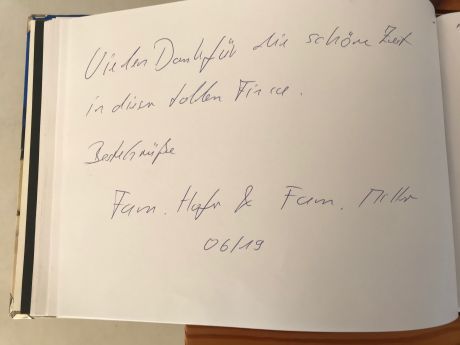 Vielen Dank für die schöne Zeit
in dieser tollen Finca.
Beste Grüße
Fam. Hofer & Fam. Miller
06/19